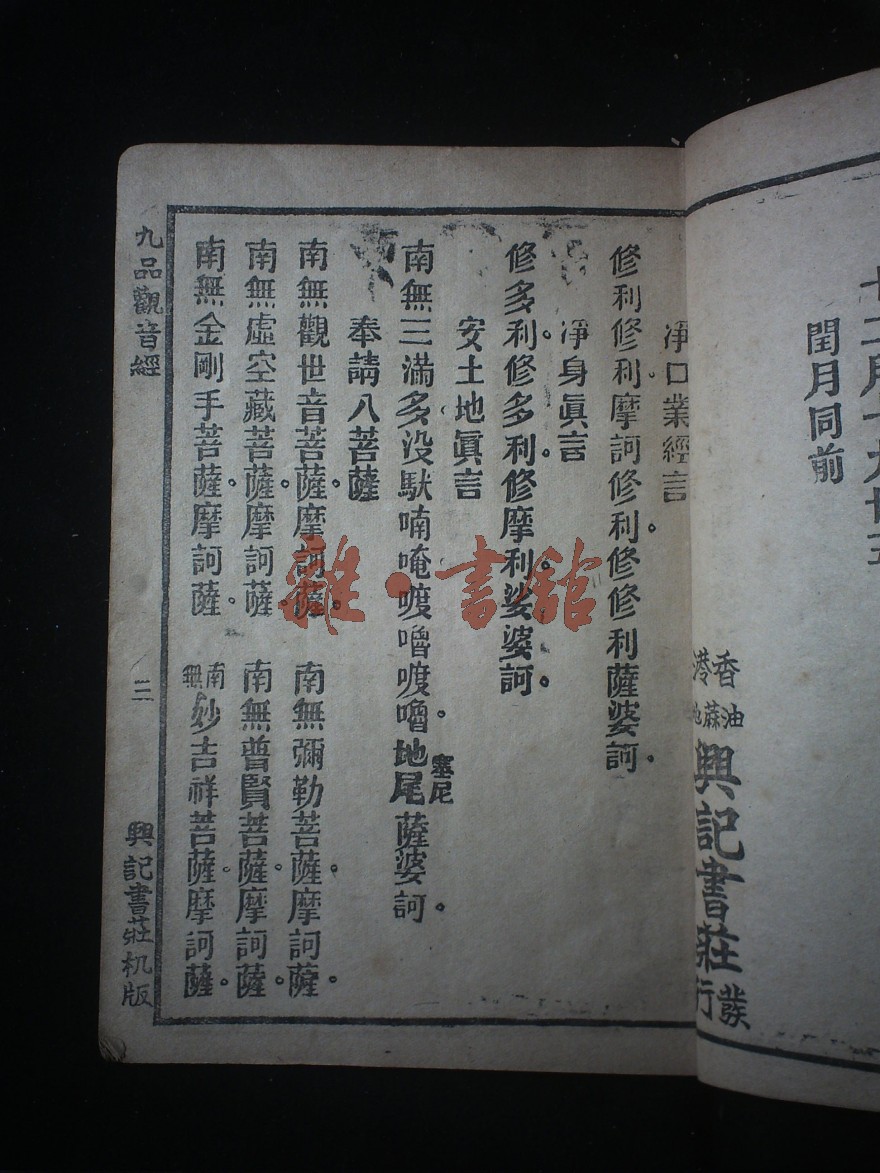 閏月同前
香港
油蔴地
興記書莊發行
淨口業經言
修利修利。摩訶修利。修修利薩婆訶。
淨身眞言
修多利。修多利。修摩利。娑婆訶。
安土地眞言
南無三滿多没馱喃唵喥嚕喥嚕。地尾薩婆訶。
塞尼
奉請八菩薩
南無觀世音菩薩。摩訶薩。 南無彌勒菩薩。摩訶薩。
南無虛空藏菩薩。摩訶薩。 南無普賢菩薩。摩訶薩。
南無金剛手菩薩。摩訶薩。 南無妙吉祥菩薩。摩訶薩。
九品觀音經 二 興記書莊机版
雜·書舘